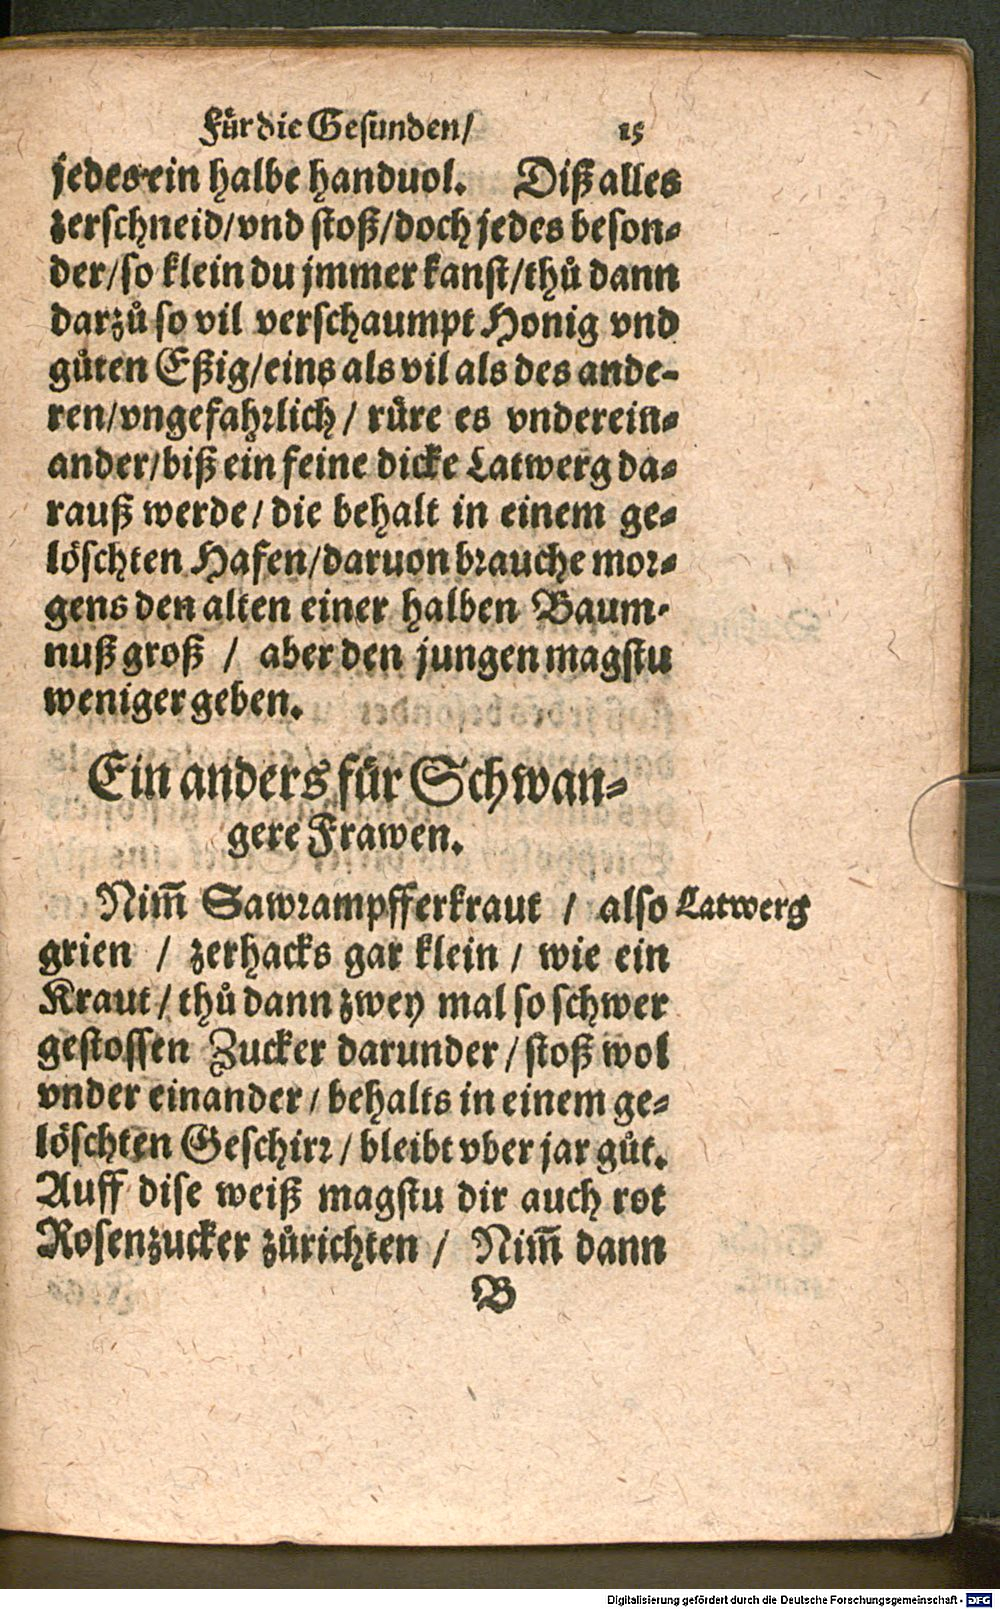 Für die Gesunden/ 15
jedes ein halbe handuol. Diß alles
zerschneid/vnd stoß/doch jedes beson-
der/so klein du jmmer kanst/thů dann
darzů so vil verschaumpt Honig vnd
gůten Eßig/eins als vil als des ande-
ren/vngefahrlich/ rüre es vnderein-
ander/biß ein feine dicke Latwerg da-
rauß werde/ die behalt in einem ge-
löschten Hafen/daruon brauche mor-
gens den alten einer halben Baum-
nuß groß / aber den jungen magstu
weniger geben.
Ein anders für Schwan-
gere Frawen.
Nim̄ Sawrampfferkraut / also
Latwerg
grien / zerhacks gar klein / wie ein
Kraut/ thů dann zwey mal so schwer
gestossen Zucker darunder/ stoß wol
vnder einander/ behalts in einem ge-
löschten Geschirr/ bleibt vber jar gůt.
Auff dise weiß magstu dir auch rot
Rosenzucker zůrichten / Nim̄ dann
B
Digitalisierung gefördert durch die Deutsche Forschungsgemeinschaft - DFG